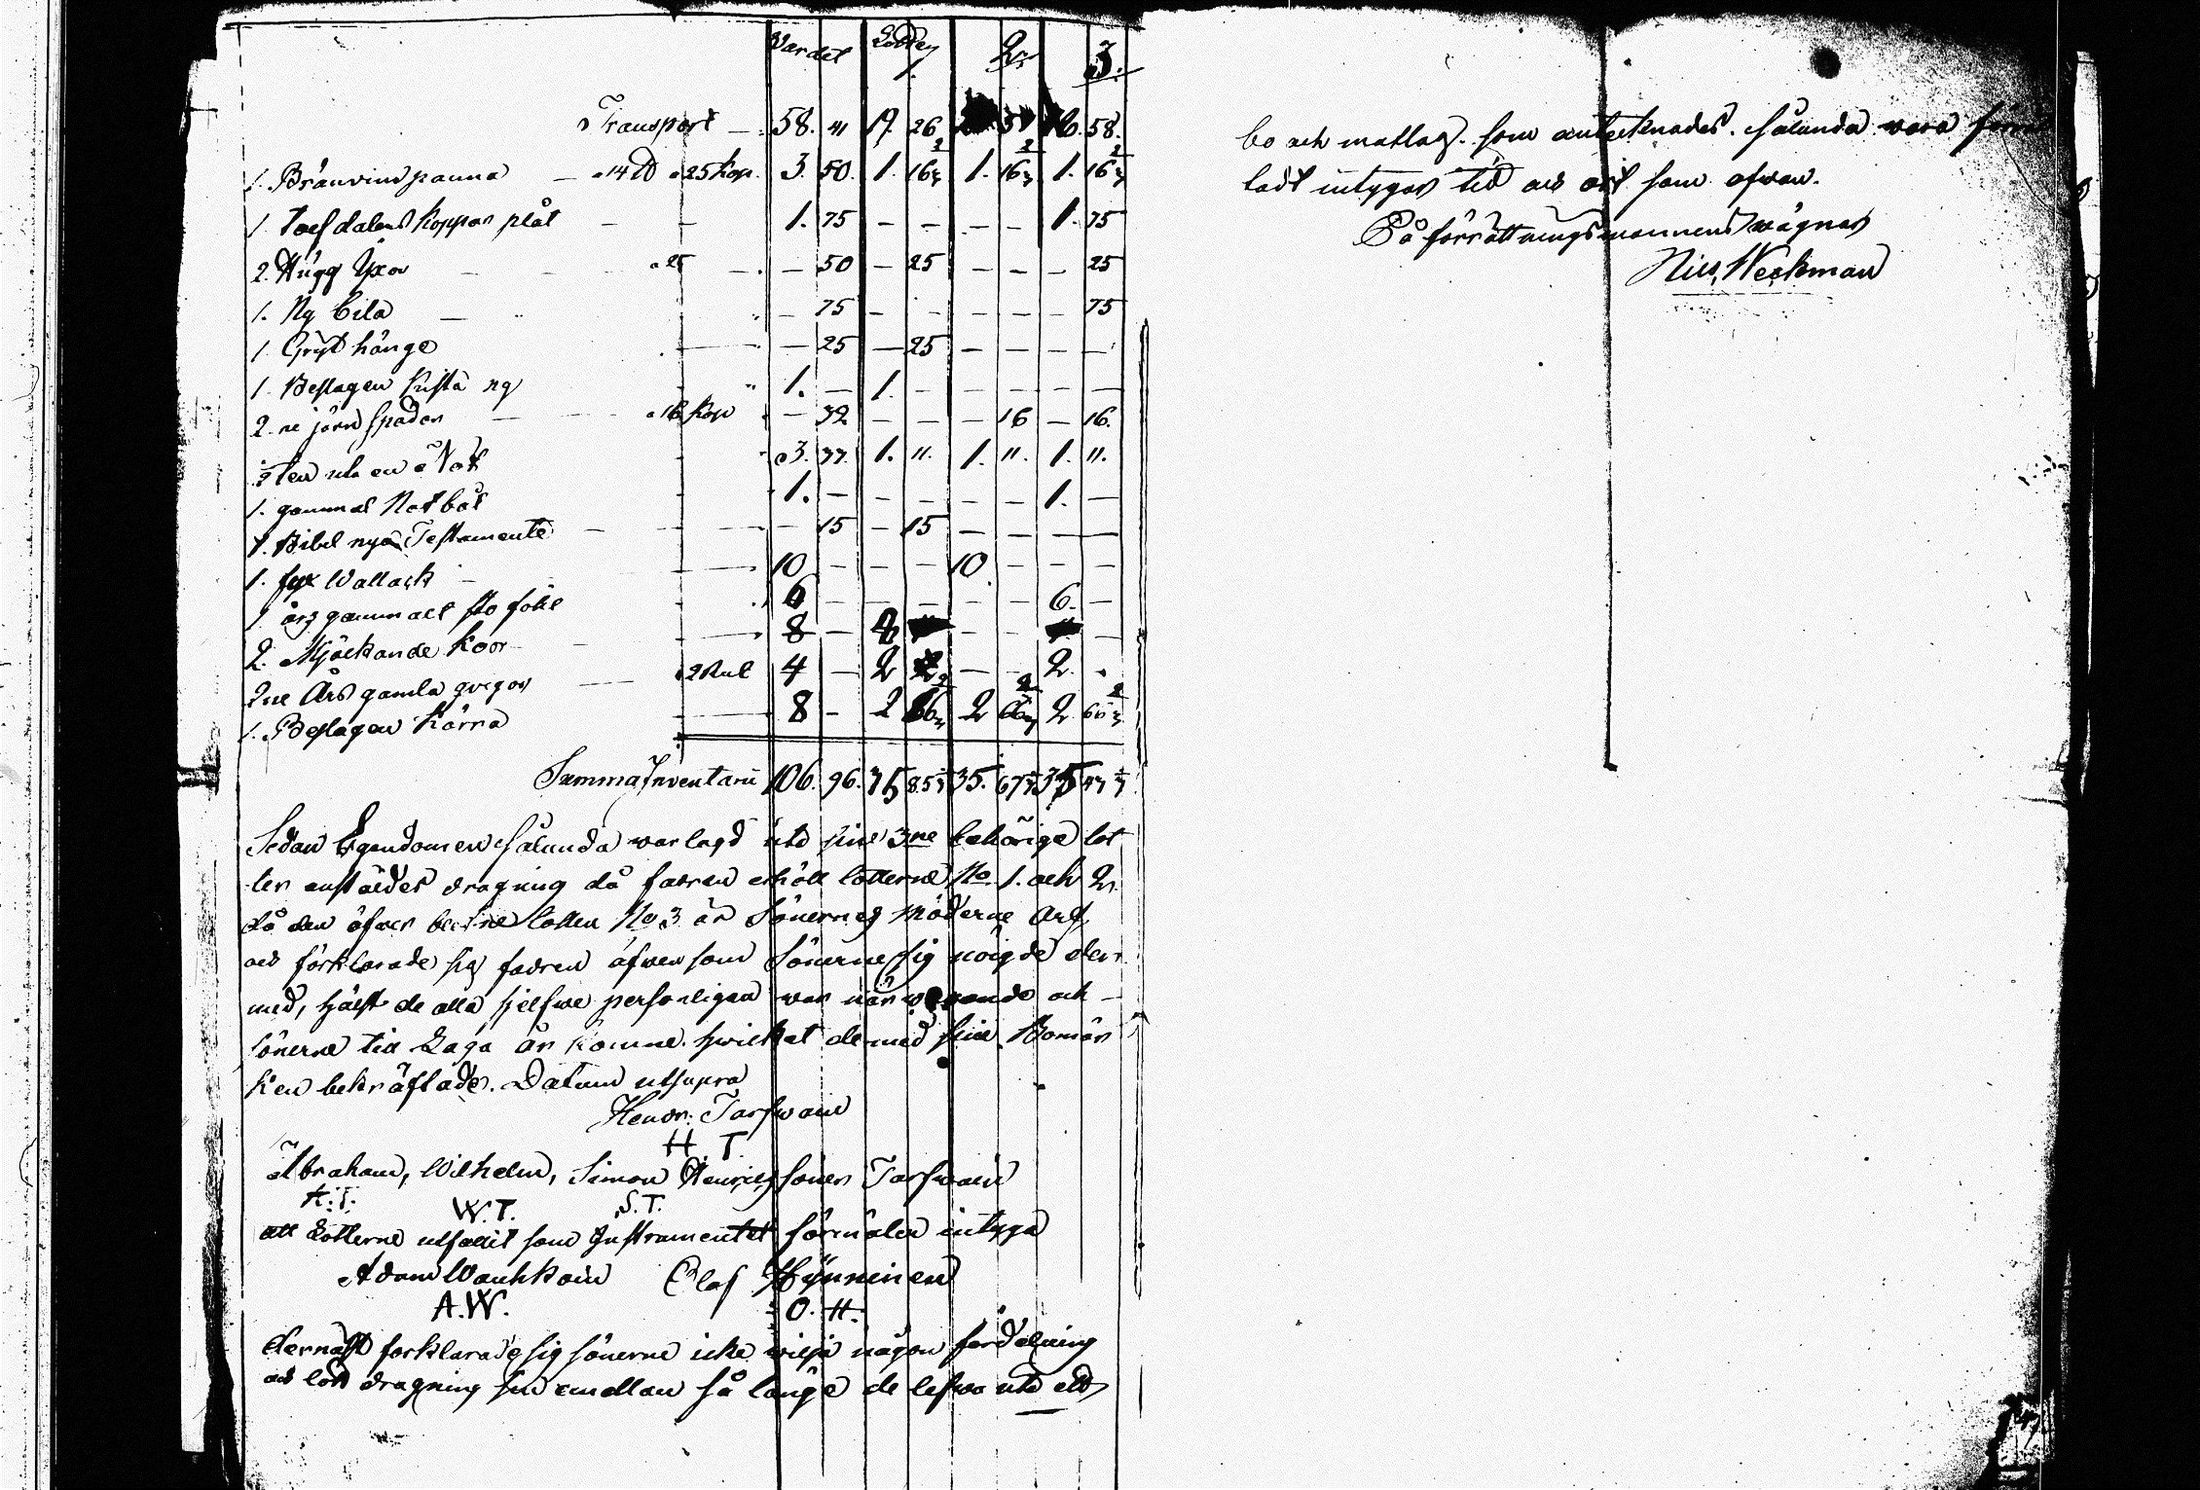 Värdet Lotten 1. 2. 3.
Transport — 58. 41 17. 26 58.
1. Bränvins panna — 14 ℔ a 25 kop. 3. 50. 1. 16⅔ 1. 16⅔ 1. 16⅔
1. Toefdalers koppar plåt — — 1. 75 — — — — 1. 75
2. Hugg Yxor — — a 25 — — 50 — 25 — — — 25
1. Ny bila — — 75 — — — — 75
1 Gryt hänge — — 25 — 25 — — — —
1. Beslagen kista ny 1. — 1. — — — — —
2. ne järn spader — a 16 kop — 32 — — — 16 — 16.
en Not 3. 33. 1. 11. 1. 11. 1. 11.
1. gammal Not båt 1. — — — — — 1. —
1. Bibel nya Testamente — — 15 — 15 — — — —
1. fux Wallack — 10 — — — 10 — — —
1 års gammalt sto fohl 6 — — — — — 6. —
2. Mjölkande koor 8 — — — —
2ne Års gamla qvigor — a 2 Rub 4 — 2 — — 2.
1. Beslagen Kärra 8 — 2 66⅔ 2 66⅔ 2 66⅔
Summa Inventarii 106. 96. 35 85⅓ 35. 67⅓ 35 43⅓
Sedan Egendomen sålunda war lagd uti sine 3ne behörige lot
ter anstäldes dragning då fadren erhöll lotterne No. 1. och 2.
då den öfwer blefne lotten No 3 är Sönernes Möderne Arf,
och förklarade sig fadren äfwen som Sönerne sig nöigde der
med, hälst de alla sjelfwe personligen war närwarande och
sönerne till Laga år komne. hwilket de med sine Bomär
ken bekräftade. Datum utsupra
Hendr: Tarfwain
H T
Abraham, Wilhelm, Simon Henrics söner Tarfwain
A.T. W.T. S.T.
att Lotterne utfallit som Instrumentet förmäler intyga
Adam Wauhkoin Olof Hynninen
A.W. O. H.
dernäst forklarade sig sönerne icke wilja någon fördelning
och lott dragning sin emellan så länge de lefwa uti ett
bo och matlag. som antecknades. sålunda wara
ladt intygas tid och ort som ofwan.
På förrättningsmannens wägnar
Nils Weckman